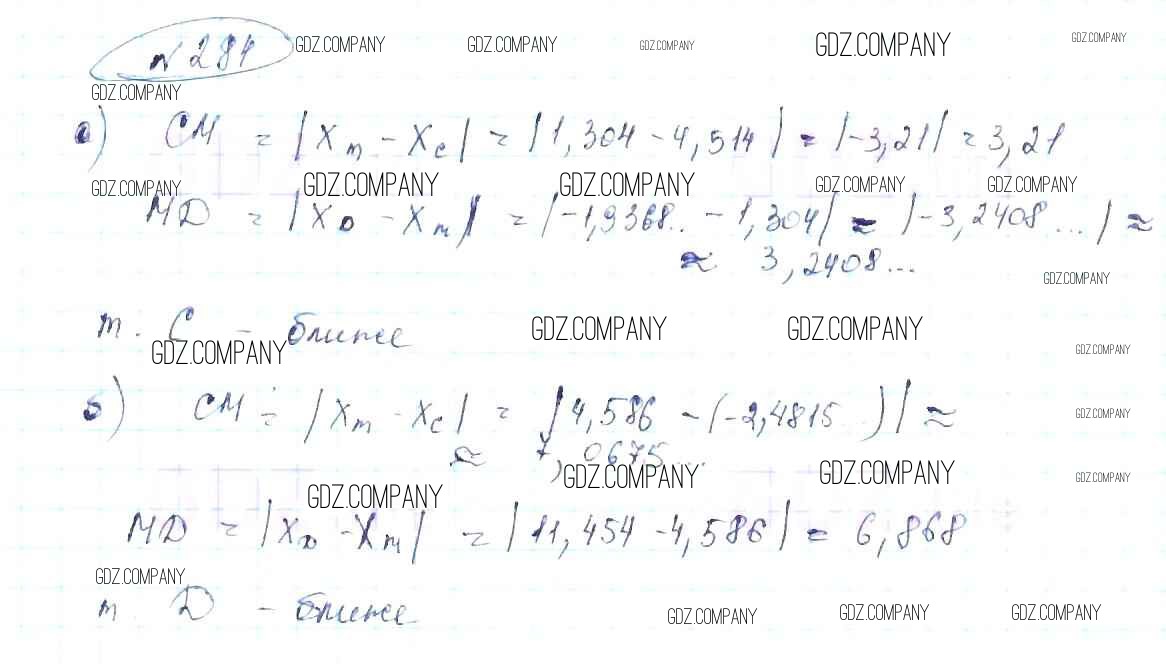 № 284 GDZ.COMPANY GDZ.COMPANY GDZ.COMPANY GDZ.COMPANY GDZ.COMPANY
GDZ.COMPANY
а) CM = |Xm - Xc| = |1,304 - 4,514| = |-3,21| = 3,21
GDZ.COMPANY GDZ.COMPANY GDZ.COMPANY GDZ.COMPANY GDZ.COMPANY
MD = |XD - Xm| = |-1,9368.. - 1,304| = |-3,2408...| ≈
≈ 3,2408...
GDZ.COMPANY
т. C - ближе GDZ.COMPANY GDZ.COMPANY
GDZ.COMPANY GDZ.COMPANY
б) CM = |Xm - Xc| = |4,586 - (-2,4815..)| ≈ GDZ.COMPANY
≈ 7,0675...
GDZ.COMPANY GDZ.COMPANY GDZ.COMPANY
GDZ.COMPANY
MD = |XD - Xm| = |11,454 - 4,586| = 6,868
GDZ.COMPANY
т. D - ближе GDZ.COMPANY GDZ.COMPANY GDZ.COMPANY